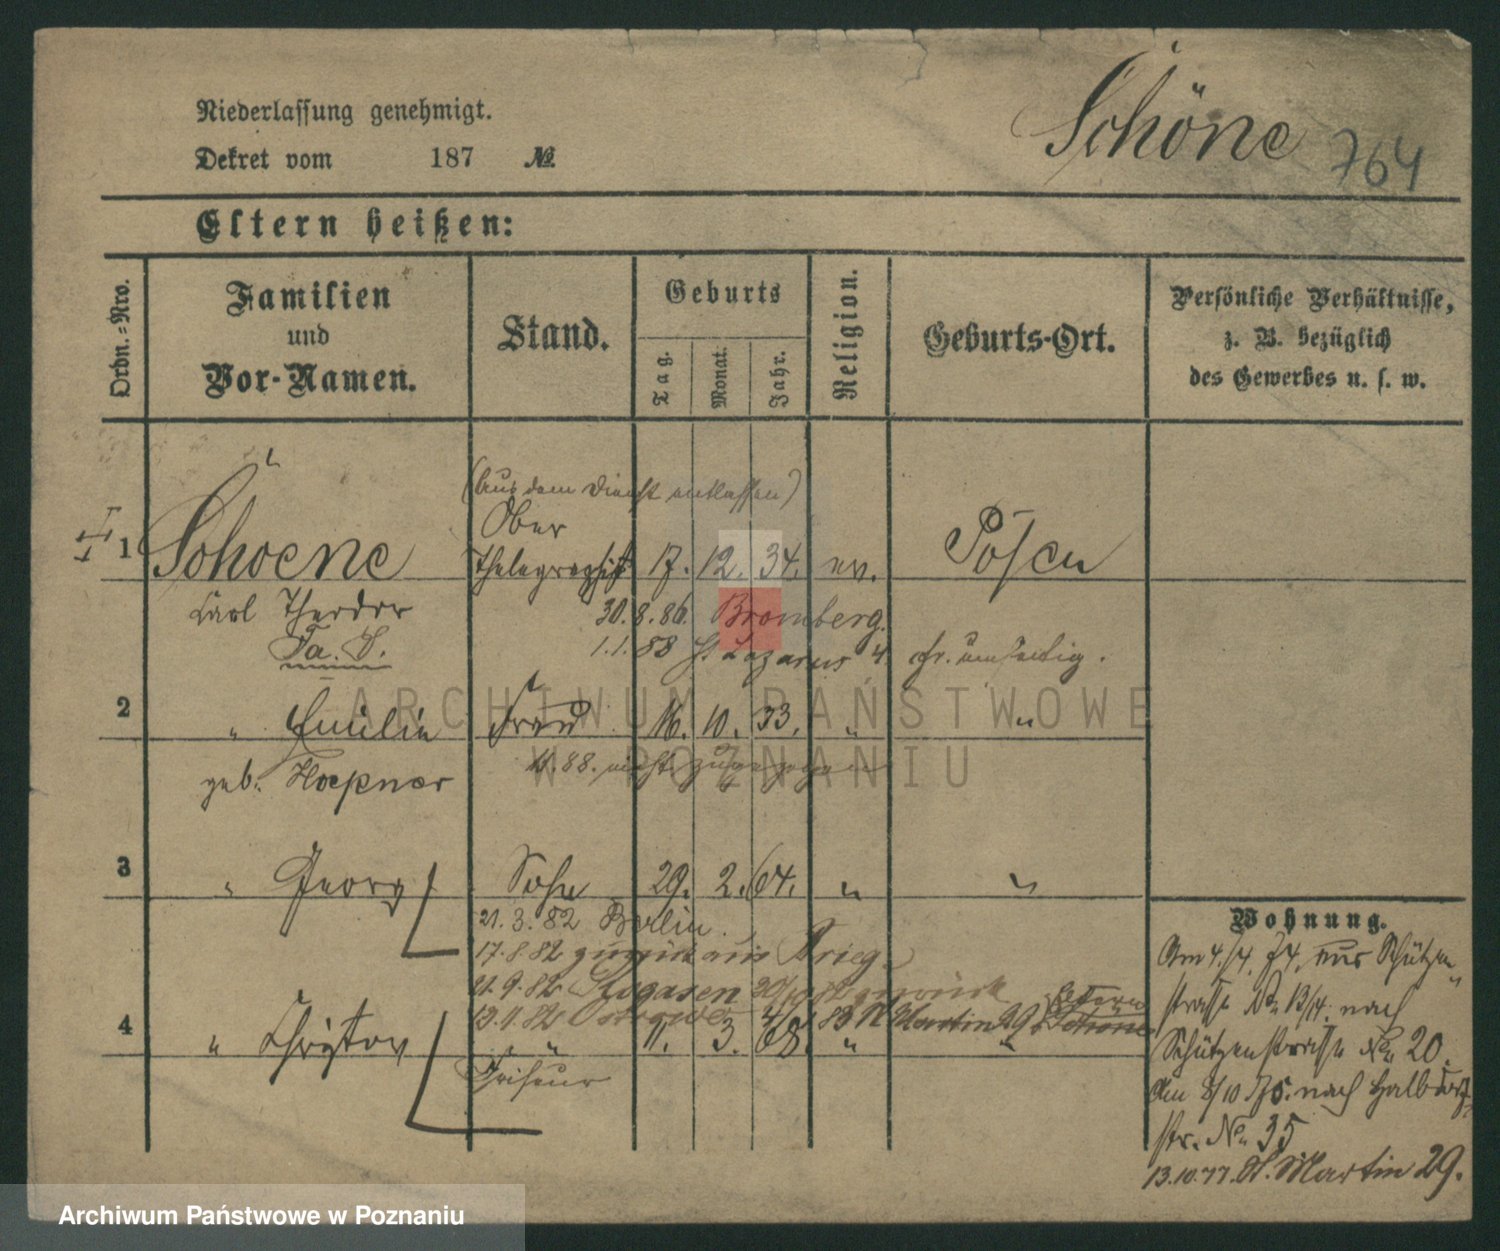 Niederlassung genehmigt.
Dekret vom 187 №
Schöne 764
Eltern heißen:
Ordn.-Nro.
Familien
und
Vor-Namen.
Stand.
Geburts
Tag.
Monat.
Jahr.
Religion.
Geburts-Ort.
Persönliche Verhältnisse,
z. B. bezüglich
des Gewerbes u. s. w.
(Aus dem Dienst entlassen)
Ober
1 Schoene Thelegraphist 17. 12. 34. ev. Posen
Carl Theodor 30.8.86. Bromberg.
Fa. S. 1.1.88 St Lazarus 4 fr. umseitig.
2 " Emilie Frau 16. 10. 33. " "
geb. Hoepner 88. nicht zugezogen
3 " Georg Sohn 29. 2. 64. " "
21.3.82 Berlin.
17.8.82 zurück aus Krieg.
21.9.82 Rogasen zurück
13.11.82 83 St Martin 29 b. Schöne Eltern
4 " " 11. 3. 68. " "
Friseur
Wohnung.
Am 4./4. 74. aus Schützen
strasse No 13/14. nach
Schützenstrasse No 20.
Am 8/10 75. nach Halbdorf
str. No 35
13.10.77. St. Martin 29.
ARCHIWUM PAŃSTWOWE
W POZNANIU
Archiwum Państwowe w Poznaniu